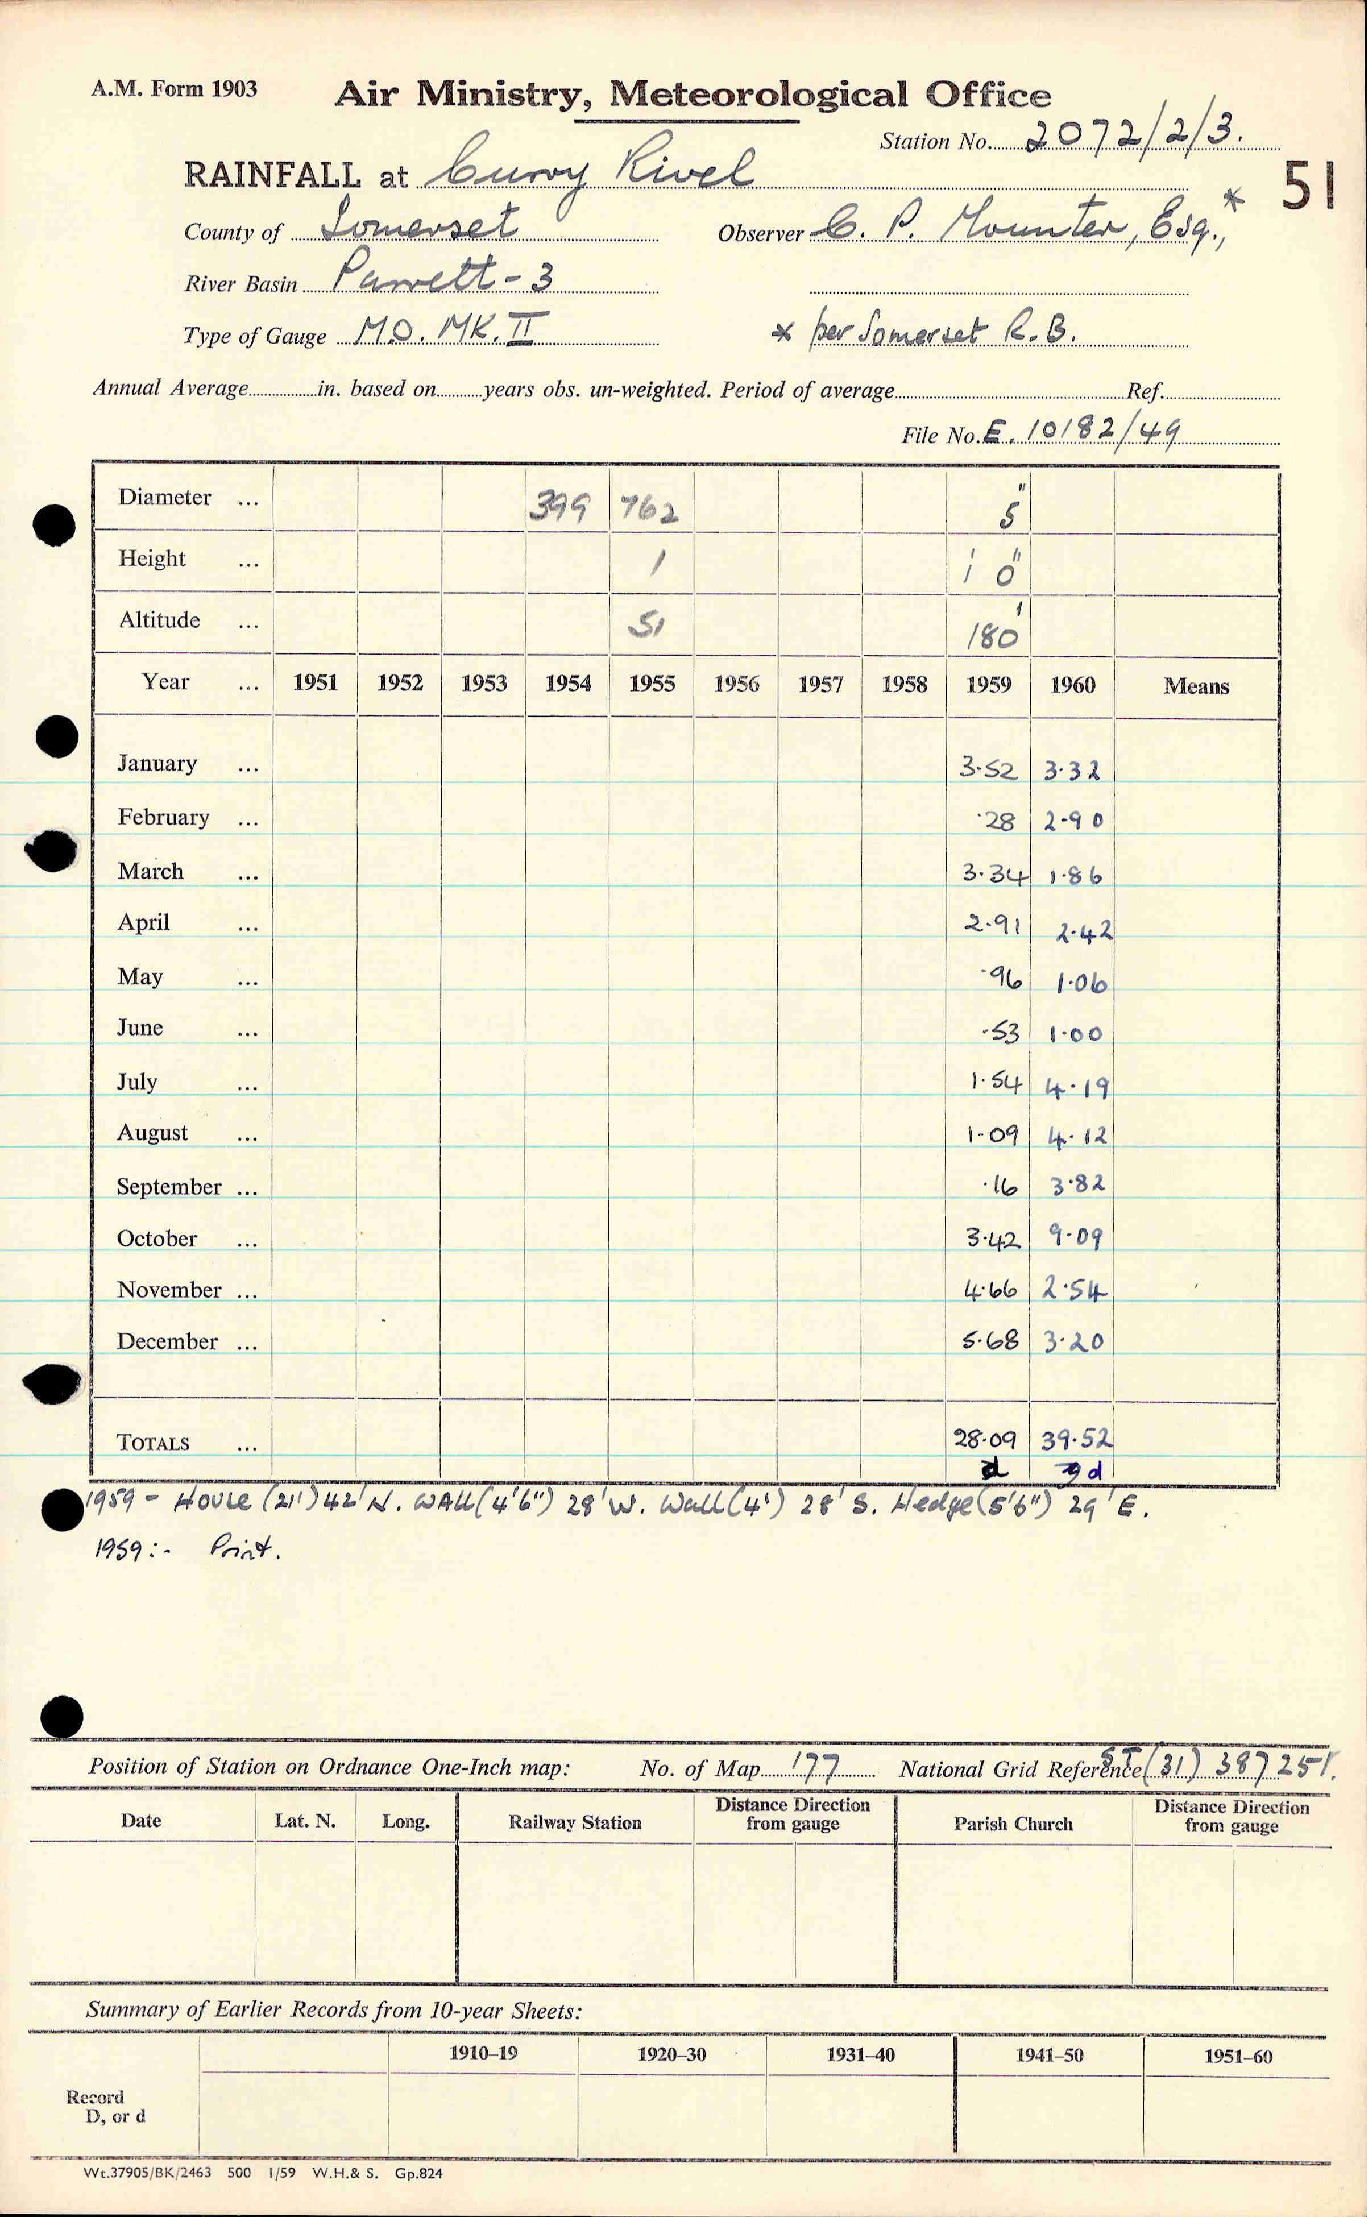 A.M. Form 1903
Air Ministry, Meteorological Office
Station No. 2072/2/3.
51
RAINFALL at Curry Rivel
County of Somerset Observer C. P. Mounter, Esq., *
River Basin Parrett - 3
Type of Gauge M.O. MK. II * per Somerset R.B.
Annual Average in. based on years obs. un-weighted. Period of average Ref.
File No. E. 10182/49
Diameter ... 399 762 5"
Height ... 1 1' 0"
Altitude ... 51 180'
Year ... 1951 1952 1953 1954 1955 1956 1957 1958 1959 1960 Means
January ... 3·52 3·32
February ... ·28 2·90
March ... 3·34 1·86
April ... 2·91 2·42
May ... ·96 1·06
June ... ·53 1·00
July ... 1·54 4·19
August ... 1·09 4·12
September ... ·16 3·82
October ... 3·42 9·09
November ... 4·66 2·54
December ... 5·68 3·20
TOTALS ... 28·09 39·52
d d
1959 - House (21') 42' N. Wall (4'6") 28' W. Wall (4') 28' S. Hedge (5'6") 29' E.
1959:- Print.
Position of Station on Ordnance One-Inch map: No. of Map 177 National Grid Reference ST (31) 387251.
Date Lat. N. Long. Railway Station Distance Direction from gauge Parish Church Distance Direction from gauge
Summary of Earlier Records from 10-year Sheets:
1910–19 1920–30 1931–40 1941–50 1951–60
Record
D, or d
Wt.37905/BK/2463 500 1/59 W.H.& S. Gp.824